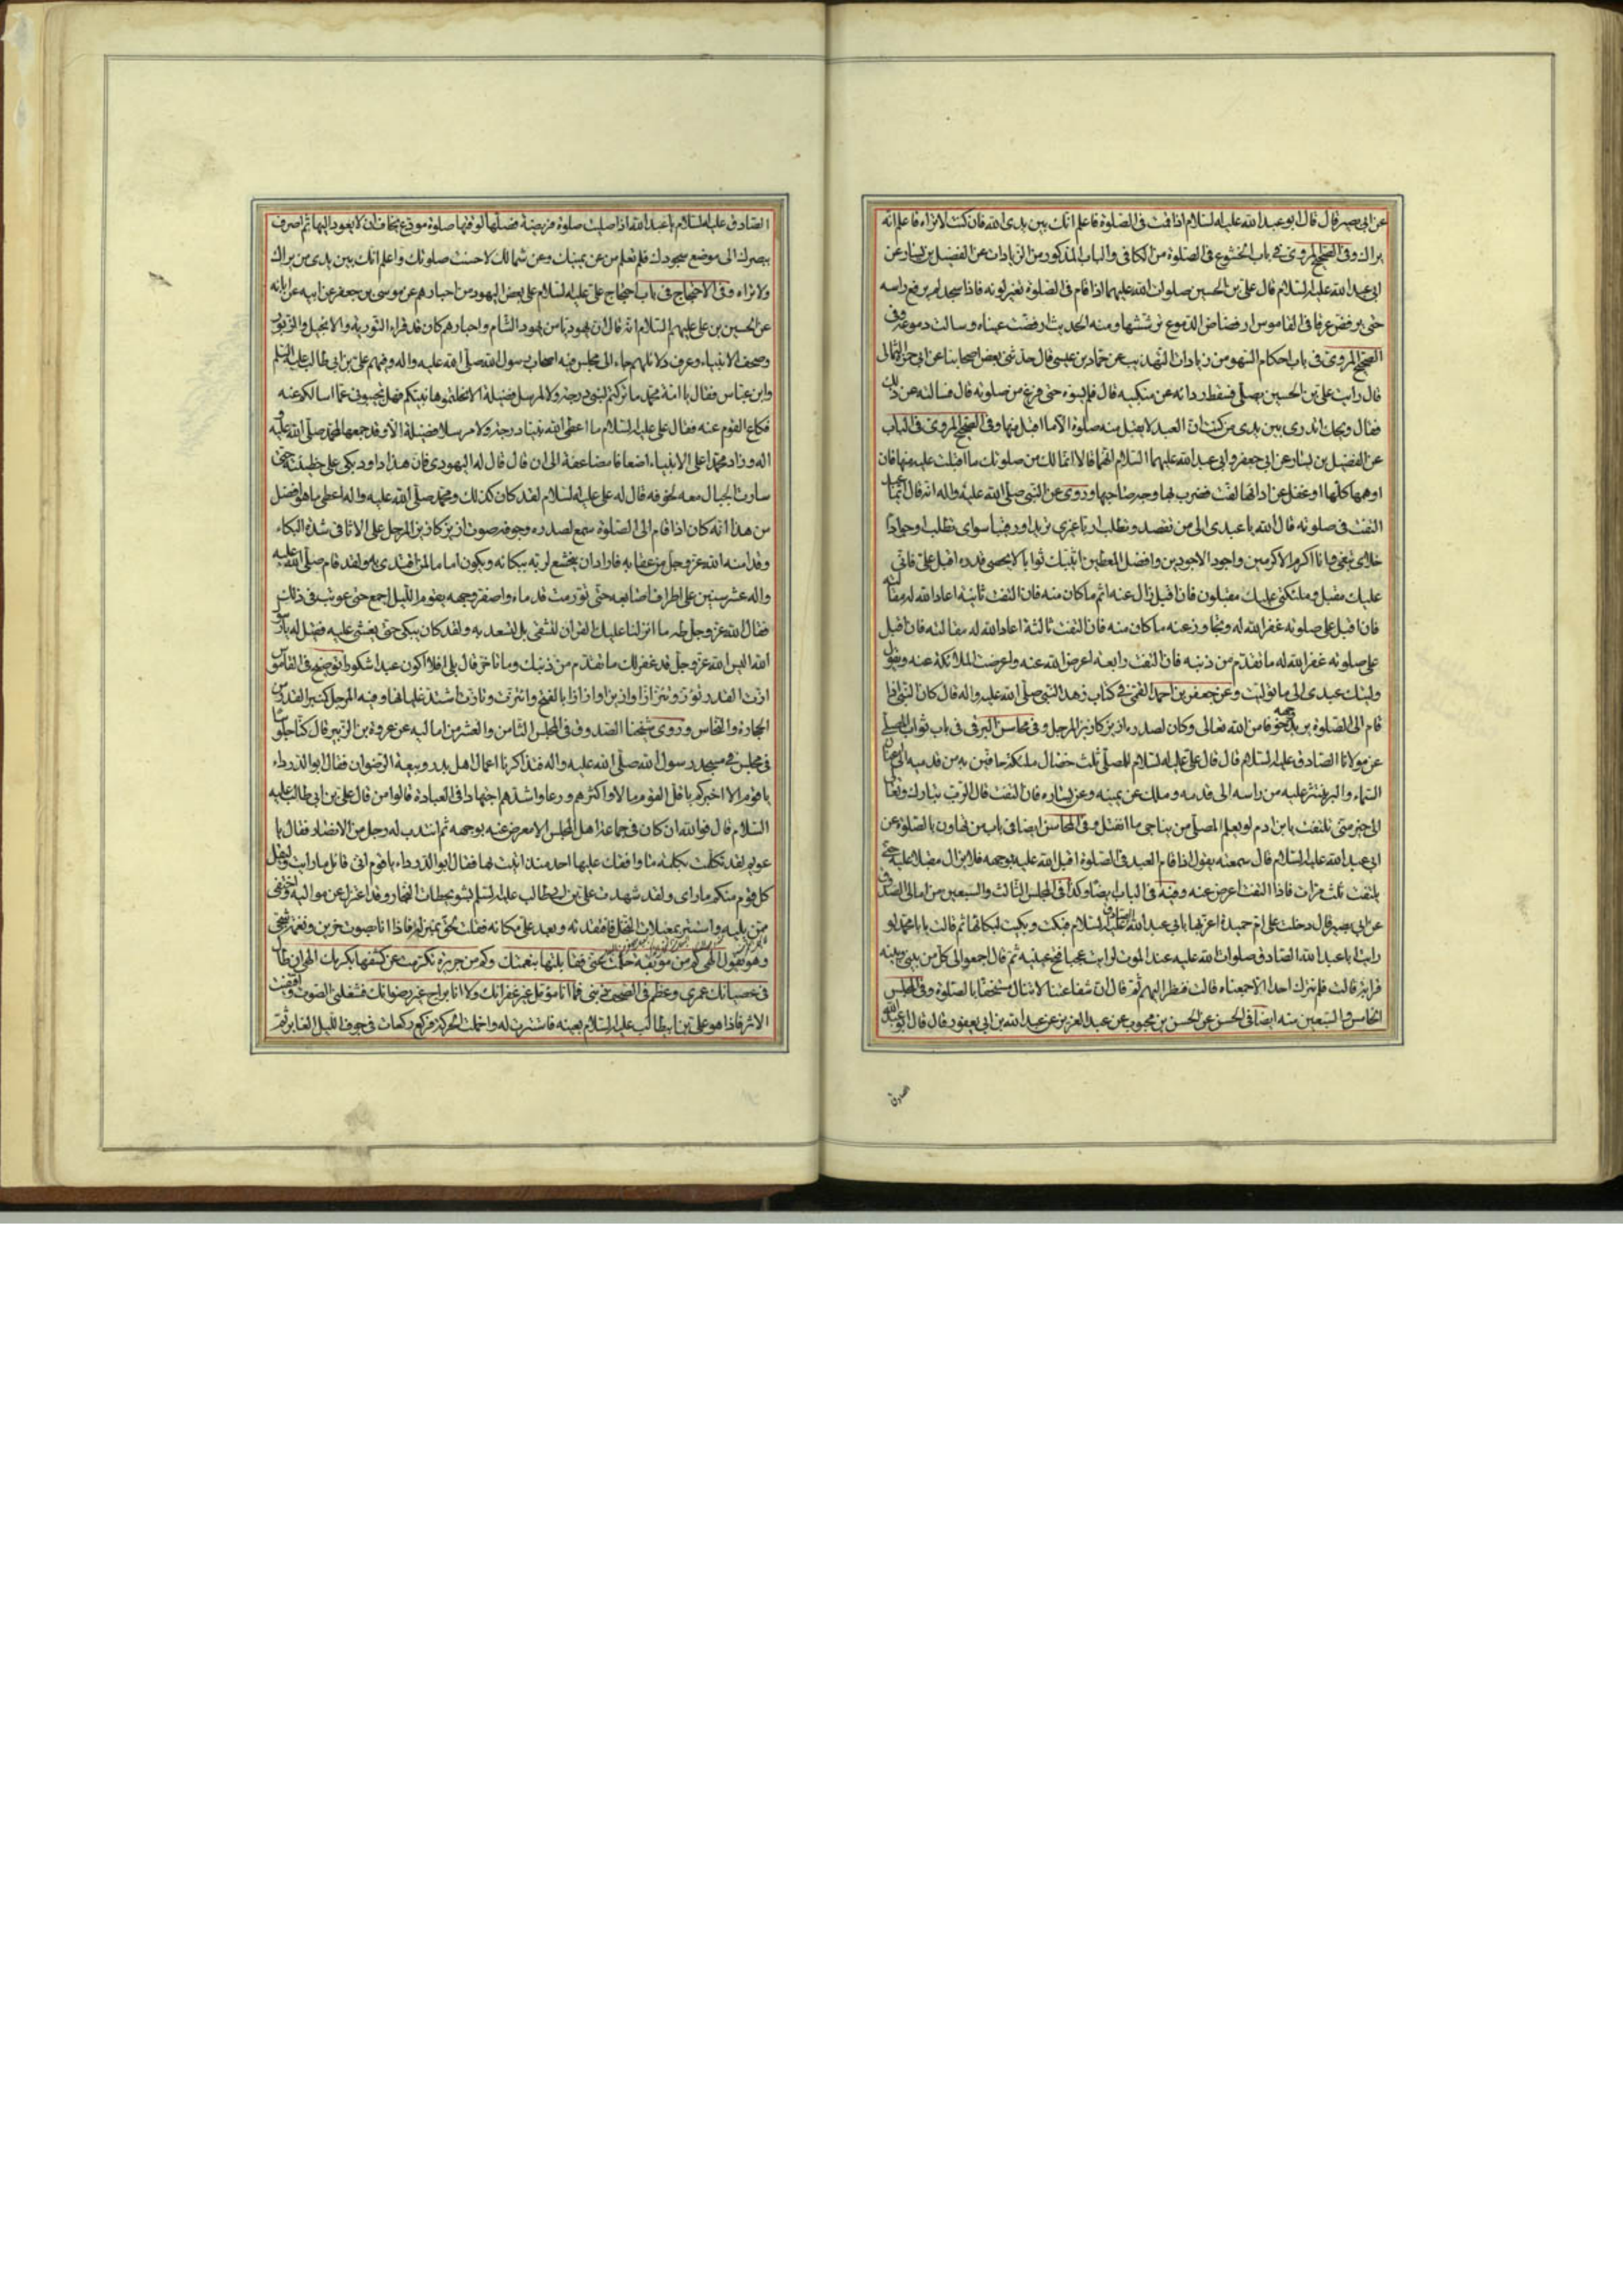 عن ابى بصير قال قال ابو عبد الله عليه السلام اذا قمت فى الصلوة فاعلم انك بين يدى الله فان كنت لا تراه فاعلم انه
يراك وفى الصحيح المروى فى باب الخشوع فى الصلوة من الكافى والباب المذكور من الزيادات عن الفضيل بن يسار عن
ابى عبد الله عليه السلام قال على بن الحسين صلوات الله عليهما اذا قام فى الصلوة تغير لونه فاذا سجد لم يرفع راسه
حتى يرفض عرقا فى القاموس ارفضاض الدموع ترششها ومنه الحديث ارفضت عيناه وسالت دموعه وفى
الصحيح المروى فى باب احكام السهو من زيادات التهذيب عن حماد بن عيسى قال حدثنى بعض اصحابنا عن ابى حمزة الثمالى
قال رايت على بن الحسين يصلى فسقط ردائه عن منكبيه قال فلم يسوه حتى فرغ من صلوته قال فسالته عن ذلك
فقال ويحك اتدرى بين يدى من كنت ان العبد لا يقبل منه صلوة الا ما اقبل منها وفى الصحيح المروى فى الباب
عن الفضيل بن يسار عن ابى جعفر وابى عبد الله عليهما السلام انهما قالا انما لك من صلوتك ما اقبلت عليه منها فان
اوهمها كلها او غفل عن ادائها لفت فضرب بها وجه صاحبها وروى عن النبى صلى الله عليه واله انه قال
التفت فى صلوته قال الله يا عبدى الى من تقصد وتطلب اربا غيرى تريد او رقيبا سواى تطلب او جوادا
خلاى تبغى وانا اكرم الاكرمين واجود الاجودين وافضل المعطين اثيبك ثوابا لا يحصى قدره اقبل على فانى
عليك مقبل وملئكتى عليك مقبلون فان اقبل زال عنه اثم ما كان منه فان التفت ثانية اعاد الله له مقالته
فان اقبل على صلوته غفر الله له وتجاوز عنه ما كان منه فان التفت ثالثة اعاد الله له مقالته فان اقبل
على صلوته غفر الله له ما تقدم من ذنبه فان التفت رابعة اعرض الله عنه واعرضت الملائكة عنه ويقول
وليتك عبدى الى ما توليت وعن جعفر بن احمد القمى فى كتاب زهد النبى صلى الله عليه واله قال كان النبى اذا
قام الى الصلوة يربد وجهه خوفا من الله تعالى وكان لصدره ازيز كازيز المرجل وفى محاسن البرقى فى باب ثواب المصلى
عن مولانا الصادق عليه السلام قال قال على عليه السلام للمصلى ثلث خصال ملئكة حافين به من قدميه الى عنان
السماء والبر ينثر عليه من راسه الى قدمه وملك عن يمينه وعن يساره فان التفت قال الرب تبارك وتعالى
الى خير منى تلتفت يا بن ادم لو يعلم المصلى من يناجى ما انفتل وفى المحاسن ايضا فى باب من تهاون بالصلوة عن
ابى عبد الله عليه السلام قال سمعته يقول اذا قام العبد فى الصلوة اقبل الله عليه بوجهه فلا يزال مقبلا عليه حتى
يلتفت ثلث مرات فاذا التفت اعرض عنه وفيه فى الباب ايضا وكذا فى المجلس الثالث والسبعين من امالى الصدوق
عن ابى بصير قال دخلت على ام حميدة اعزيها بابى عبد الله الصادق عليه السلام فبكت وبكيت لبكائها ثم قالت يا با محمد لو
رايت ابا عبد الله الصادق صلوات الله عليه عند الموت لرايت عجبا فتح عينيه ثم قال اجمعوا الى كل من بينى وبينه
قرابة قالت فلم نترك احدا الا جمعناه قالت فنظر اليهم ثم قال ان شفاعتنا لا تنال مستخفا بالصلوة وفى المجلس
الخامس والسبعين منه ايضا فى الحسن عن الحسن بن محبوب عن عبد العزيز عن عبد الله بن ابى يعفور قال قال ابو عبد الله
الصادق
الصادق عليه السلام يا عبد الله اذا صليت صلوة فريضة فصلها لوقتها صلوة مودع يخاف ان لا يعود اليها ثم اصرف
ببصرك الى موضع سجودك فلو تعلم من عن يمينك وعن شمالك لاحسنت صلوتك واعلم انك بين يدى من يراك
ولا تراه وفى الاحتجاج فى باب احتجاج على عليه السلام على بعض اليهود من احبارهم عن موسى بن جعفر عن ابيه عن ابائه
عن الحسين بن على عليهم السلام انه قال ان يهوديا من يهود الشام واحبارهم كان قد قراء التورية والانجيل والزبور
وصحف الانبياء وعرف دلائلهم جاء الى مجلس فيه اصحاب رسول الله صلى الله عليه واله وفيهم على بن ابى طالب عليه السلم
وابن عباس فقال يا امة محمد ما تركتم لنبى درجة ولا لمرسل فضيلة الا نحلتموها نبيكم فهل تجيبونى عما اسالكم عنه
فكاع القوم عنه فقال على عليه السلام ما اعطى الله نبيا درجة ولا مرسلا فضيلة الا وقد جمعها لمحمد صلى الله عليه و
اله وزاد محمدا على الانبياء اضعافا مضاعفة الى ان قال قال له اليهودى فان هذا داود بكى على خطيئته حتى
سارت الجبال معه لخوفه قال له على عليه السلام لقد كان كذلك ومحمد صلى الله عليه واله اعطى ما هو افضل
من هذا انه كان اذا قام الى الصلوة سمع لصدره وجوفه صوت ازيز كازيز المرجل على الاثافى من شدة البكاء
وقد امنه الله عز وجل من عقابه فاراد ان يتخشع لربه ببكائه ويكون اماما لمن اقتدى به ولقد قام صلى الله عليه
واله عشر سنين على اطراف اصابعه حتى تورمت قدماه واصفر وجهه يقوم الليل اجمع حتى عوتب فى ذلك
فقال الله عز وجل طه ما انزلنا عليك القران لتشقى بل لتسعد به ولقد كان يبكى حتى يغشى عليه فقيل له يا رسول
الله اليس الله عز وجل قد غفر لك ما تقدم من ذنبك وما تاخر قال بلى افلا اكون عبدا شكورا توضيح فى القاموس
ازت القدر تؤز وتئز ازا وازيزا وازازا بالفتح وائتزت وتازت اشتد غليانها وفيه المرجل كمنبر القدر من
الحجارة والنحاس وروى شيخنا الصدوق فى المجلس الثامن والعشر من اماليه عن عروة بن الزبير قال كنا جلوسا
فى مجلس فى مسجد رسول الله صلى الله عليه واله فتذاكرنا اعمال اهل بدر وبيعة الرضوان فقال ابو الدرداء
يا قوم الا اخبركم باقل القوم مالا واكثرهم ورعا واشدهم اجتهادا فى العبادة قالوا من قال على بن ابى طالب عليه
السلام قال فوالله ان كان فى جماعة اهل المجلس الا معرض عنه بوجهه ثم انتدب له رجل من الانصار فقال يا
عويمر لقد تكلمت بكلمة ما وافقك عليها احد منذ اتيت بها فقال ابو الدرداء يا قوم انى قائل ما رايت وليقل
كل قوم منكم ما راى ولقد شهدت على بن ابيطالب عليه السلم بشويحطات النجار وقد اعتزل عن مواليه واختفى
ممن يليه واستتر بمغيلات النخل فافتقدته وبعد على مكانه فقلت لحق بمنزله فاذا انا بصوت حزين ونغمة شجى
وهو يقول الهى كم من موبقة حملت عنى فقابلتها بنعمتك وكم من جريرة تكرمت عن كشفها بكرمك الهى ان طال
فى عصيانك عمرى وعظم فى الصحف ذنبى فما انا مؤمل غير غفرانك ولا انا براج غير رضوانك فشغلنى الصوت واقتفيت
الاثر فاذا هو على بن ابيطالب عليه السلام بعينه فاستترت له واخملت الحركة فركع ركعات فى جوف الليل الغابر ثم